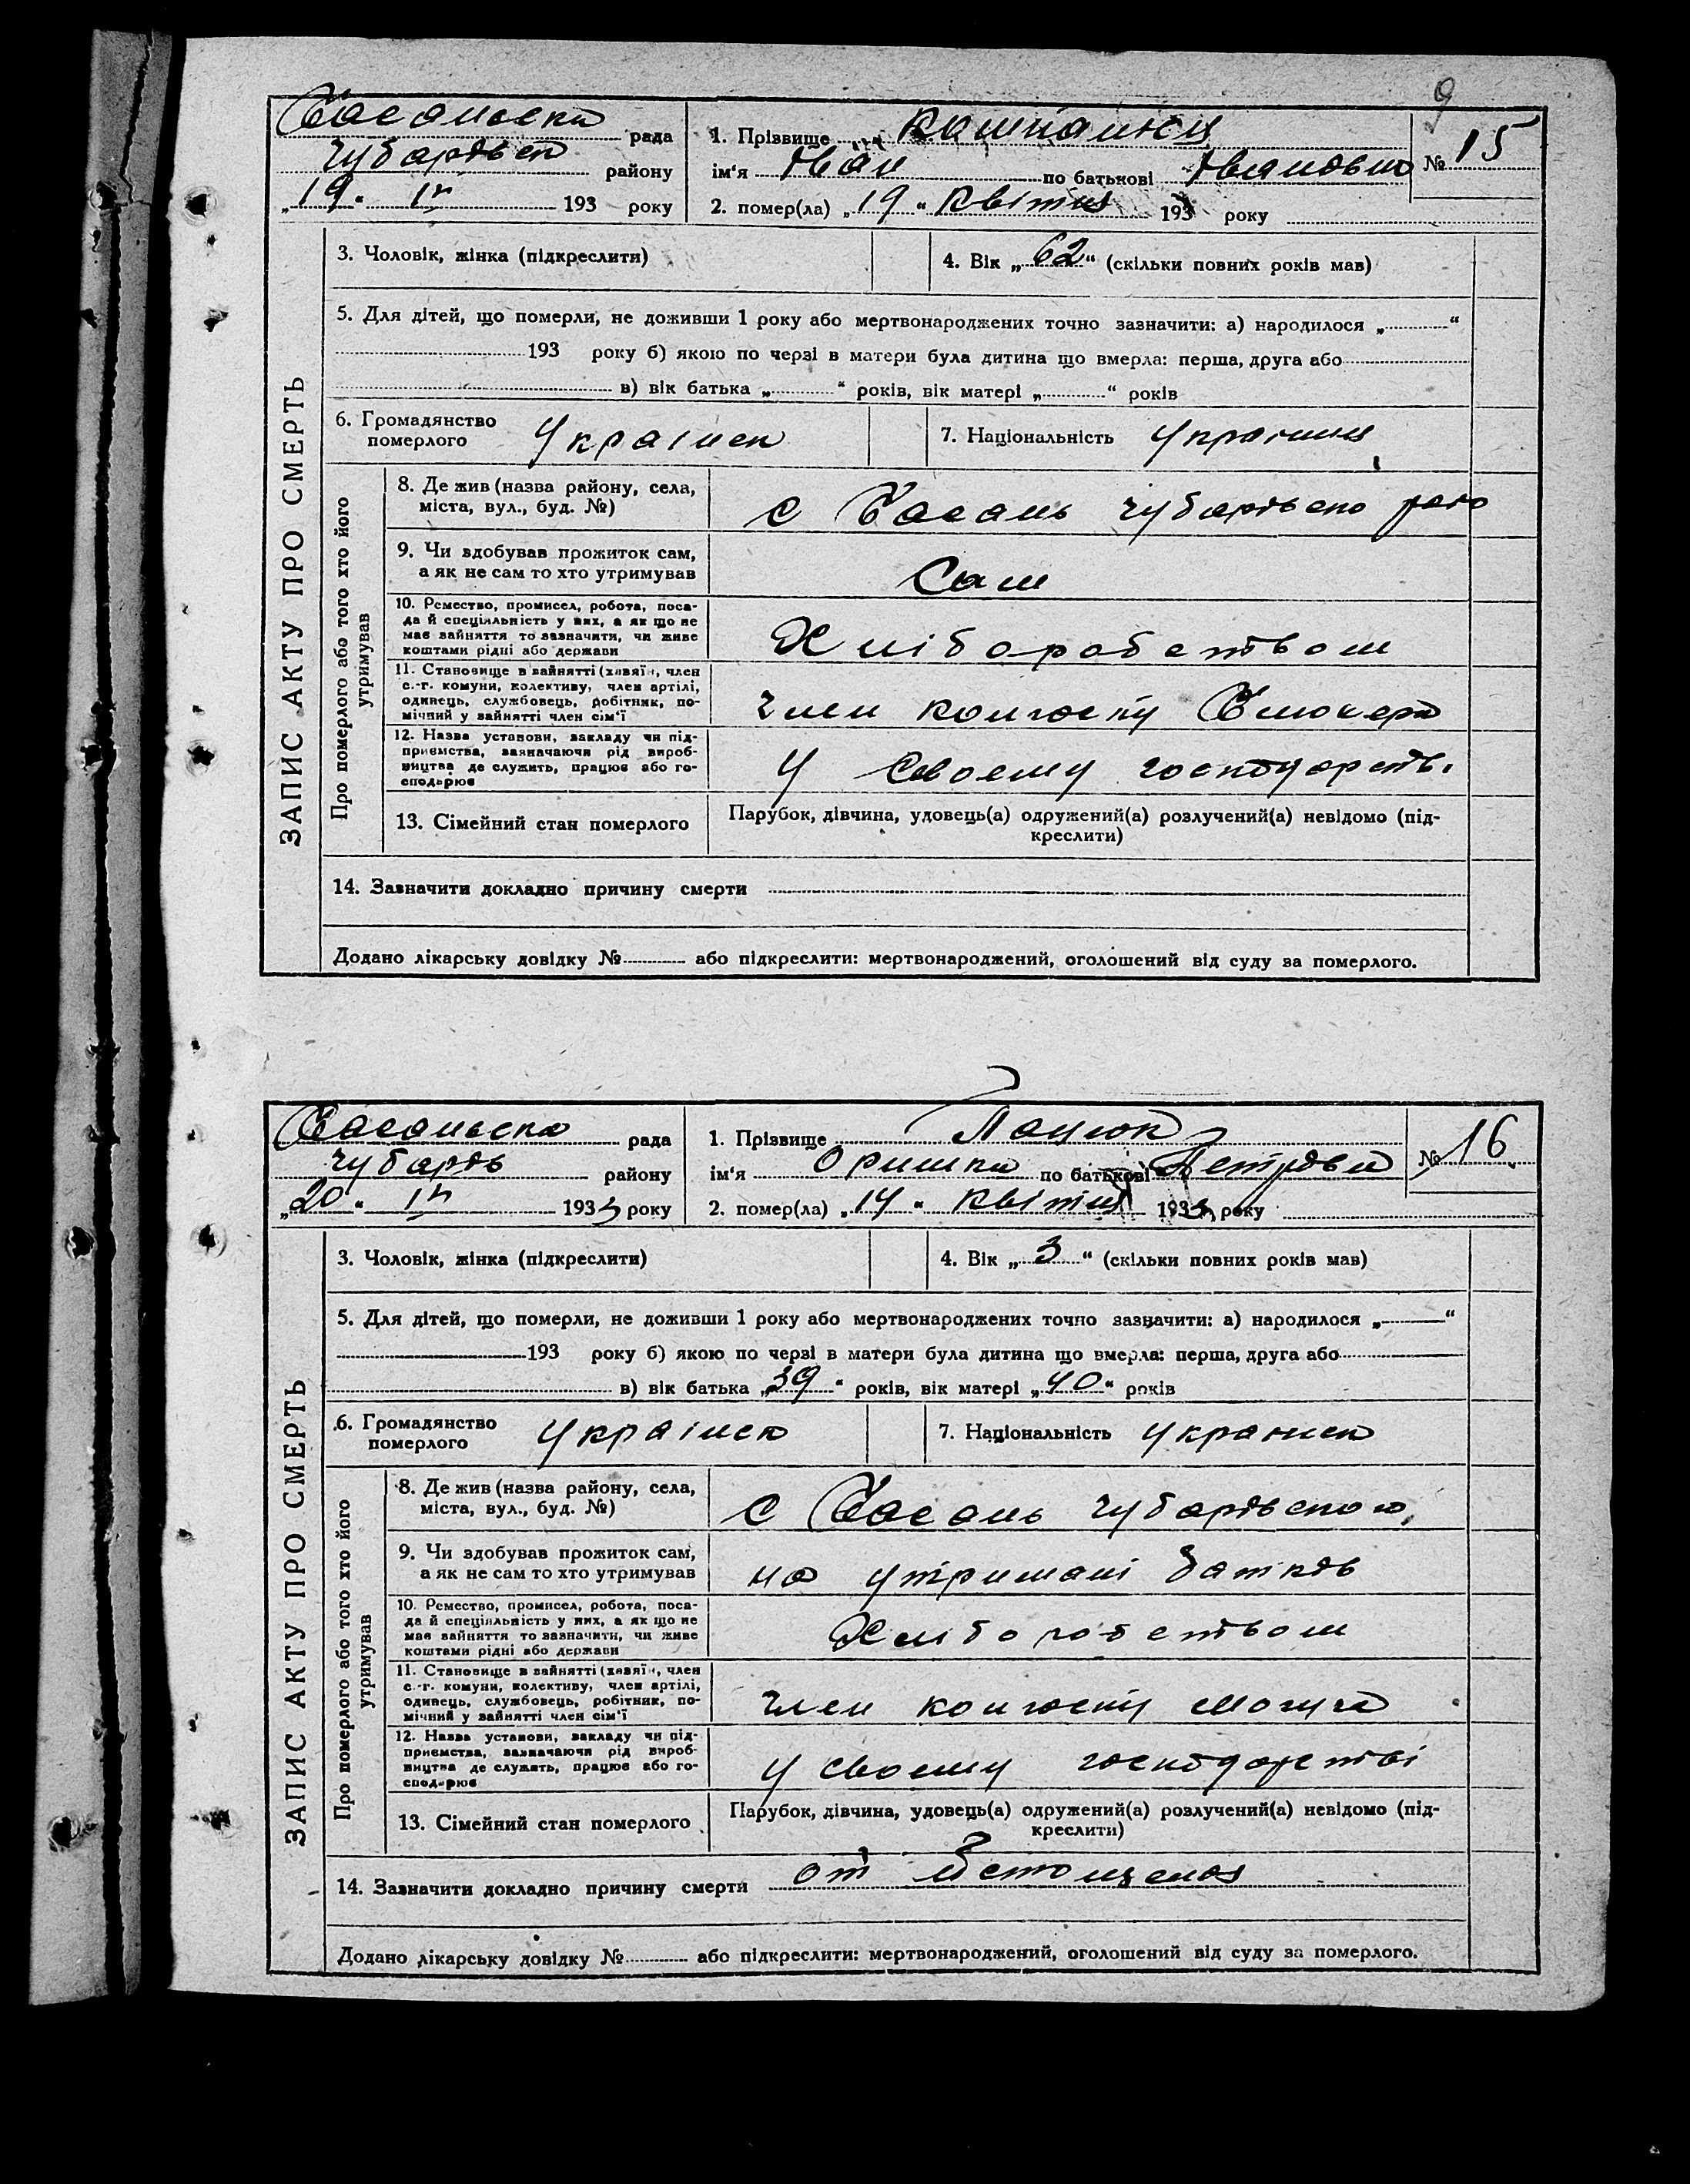 9
Басанська рада
Чубарівськ району
„19“ IV 193 року
1. Прізвище
ім'я Іван по батькові Іванович
2. помер(ла) „19“ Квітня 193 року
№ 15
ЗАПИС АКТУ ПРО СМЕРТЬ
3. Чоловік, жінка (підкреслити)
4. Вік „62“ (скільки повних років мав)
5. Для дітей, що померли, не доживши 1 року або мертвонароджених точно зазначити: а) народилося „ “
193 року б) якою по черзі в матери була дитина що вмерла: перша, друга або
в) вік батька „ “ років, вік матері „ “ років
6. Громадянство померлого Украінск
7. Національність Украінец
Про померлого або того хто його утримував
8. Де жив (назва району, села,
міста, вул., буд. №)
с Басань Чубарівсько
9. Чи здобував прожиток сам,
а як не сам то хто утримував
Сам
10. Ремество, промисел, робота, поса-
да й спеціяльність у них, а як що не
має зайняття то зазначити, чи живе
коштами рідні або держави
Хліборобством
11. Становище в зайнятті (хазяїн, член
с.-г. комуни, колективу, член артілі,
одинець, службовець, робітник, по-
мічний у зайнятті член сім'ї
член колгоспу Блюхера
12. Назва установи, закладу чи під-
приємства, зазначаючи рід вироб-
ництва де служить, працює або го-
сподарює
У своему господарств.
13. Сімейний стан померлого
Парубок, дівчина, удовець(а) одружений(а) розлучений(а) невідомо (під-
креслити)
14. Зазначити докладно причину смерти
Додано лікарську довідку № або підкреслити: мертвонароджений, оголошений від суду за померлого.
Басанська рада
Чубарів району
„20“ IV 1933 року
1. Прізвище Пацюк
ім'я Оришка по батькові Петрівна
2. помер(ла) „14“ Квітня 1933 року
№ 16
ЗАПИС АКТУ ПРО СМЕРТЬ
3. Чоловік, жінка (підкреслити)
4. Вік „3“ (скільки повних років мав)
5. Для дітей, що померли, не доживши 1 року або мертвонароджених точно зазначити: а) народилося „ “
193 року б) якою по черзі в матери була дитина що вмерла: перша, друга або
в) вік батька „39“ років, вік матері „40“ років
6. Громадянство померлого Украінск
7. Національність Украінск
Про померлого або того хто його утримував
8. Де жив (назва району, села,
міста, вул., буд. №)
с Басань Чубарівського
9. Чи здобував прожиток сам,
а як не сам то хто утримував
на утримані батків
10. Ремество, промисел, робота, поса-
да й спеціяльність у них, а як що не
має зайняття то зазначити, чи живе
коштами рідні або держави
Хліборобством
11. Становище в зайнятті (хазяїн, член
с.-г. комуни, колективу, член артілі,
одинець, службовець, робітник, по-
мічний у зайнятті член сім'ї
член колгоспу
12. Назва установи, закладу чи під-
приємства, зазначаючи рід вироб-
ництва де служить, працює або го-
сподарює
У своему господарстві
13. Сімейний стан померлого
Парубок, дівчина, удовець(а) одружений(а) розлучений(а) невідомо (під-
креслити)
14. Зазначити докладно причину смерти от Истощения
Додано лікарську довідку № або підкреслити: мертвонароджений, оголошений від суду за померлого.